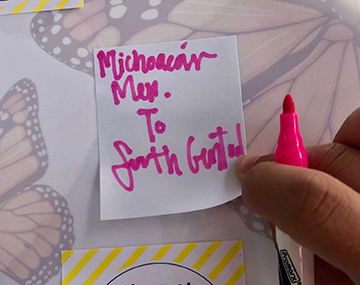 Michoacán
Mex.
To
South Gusted